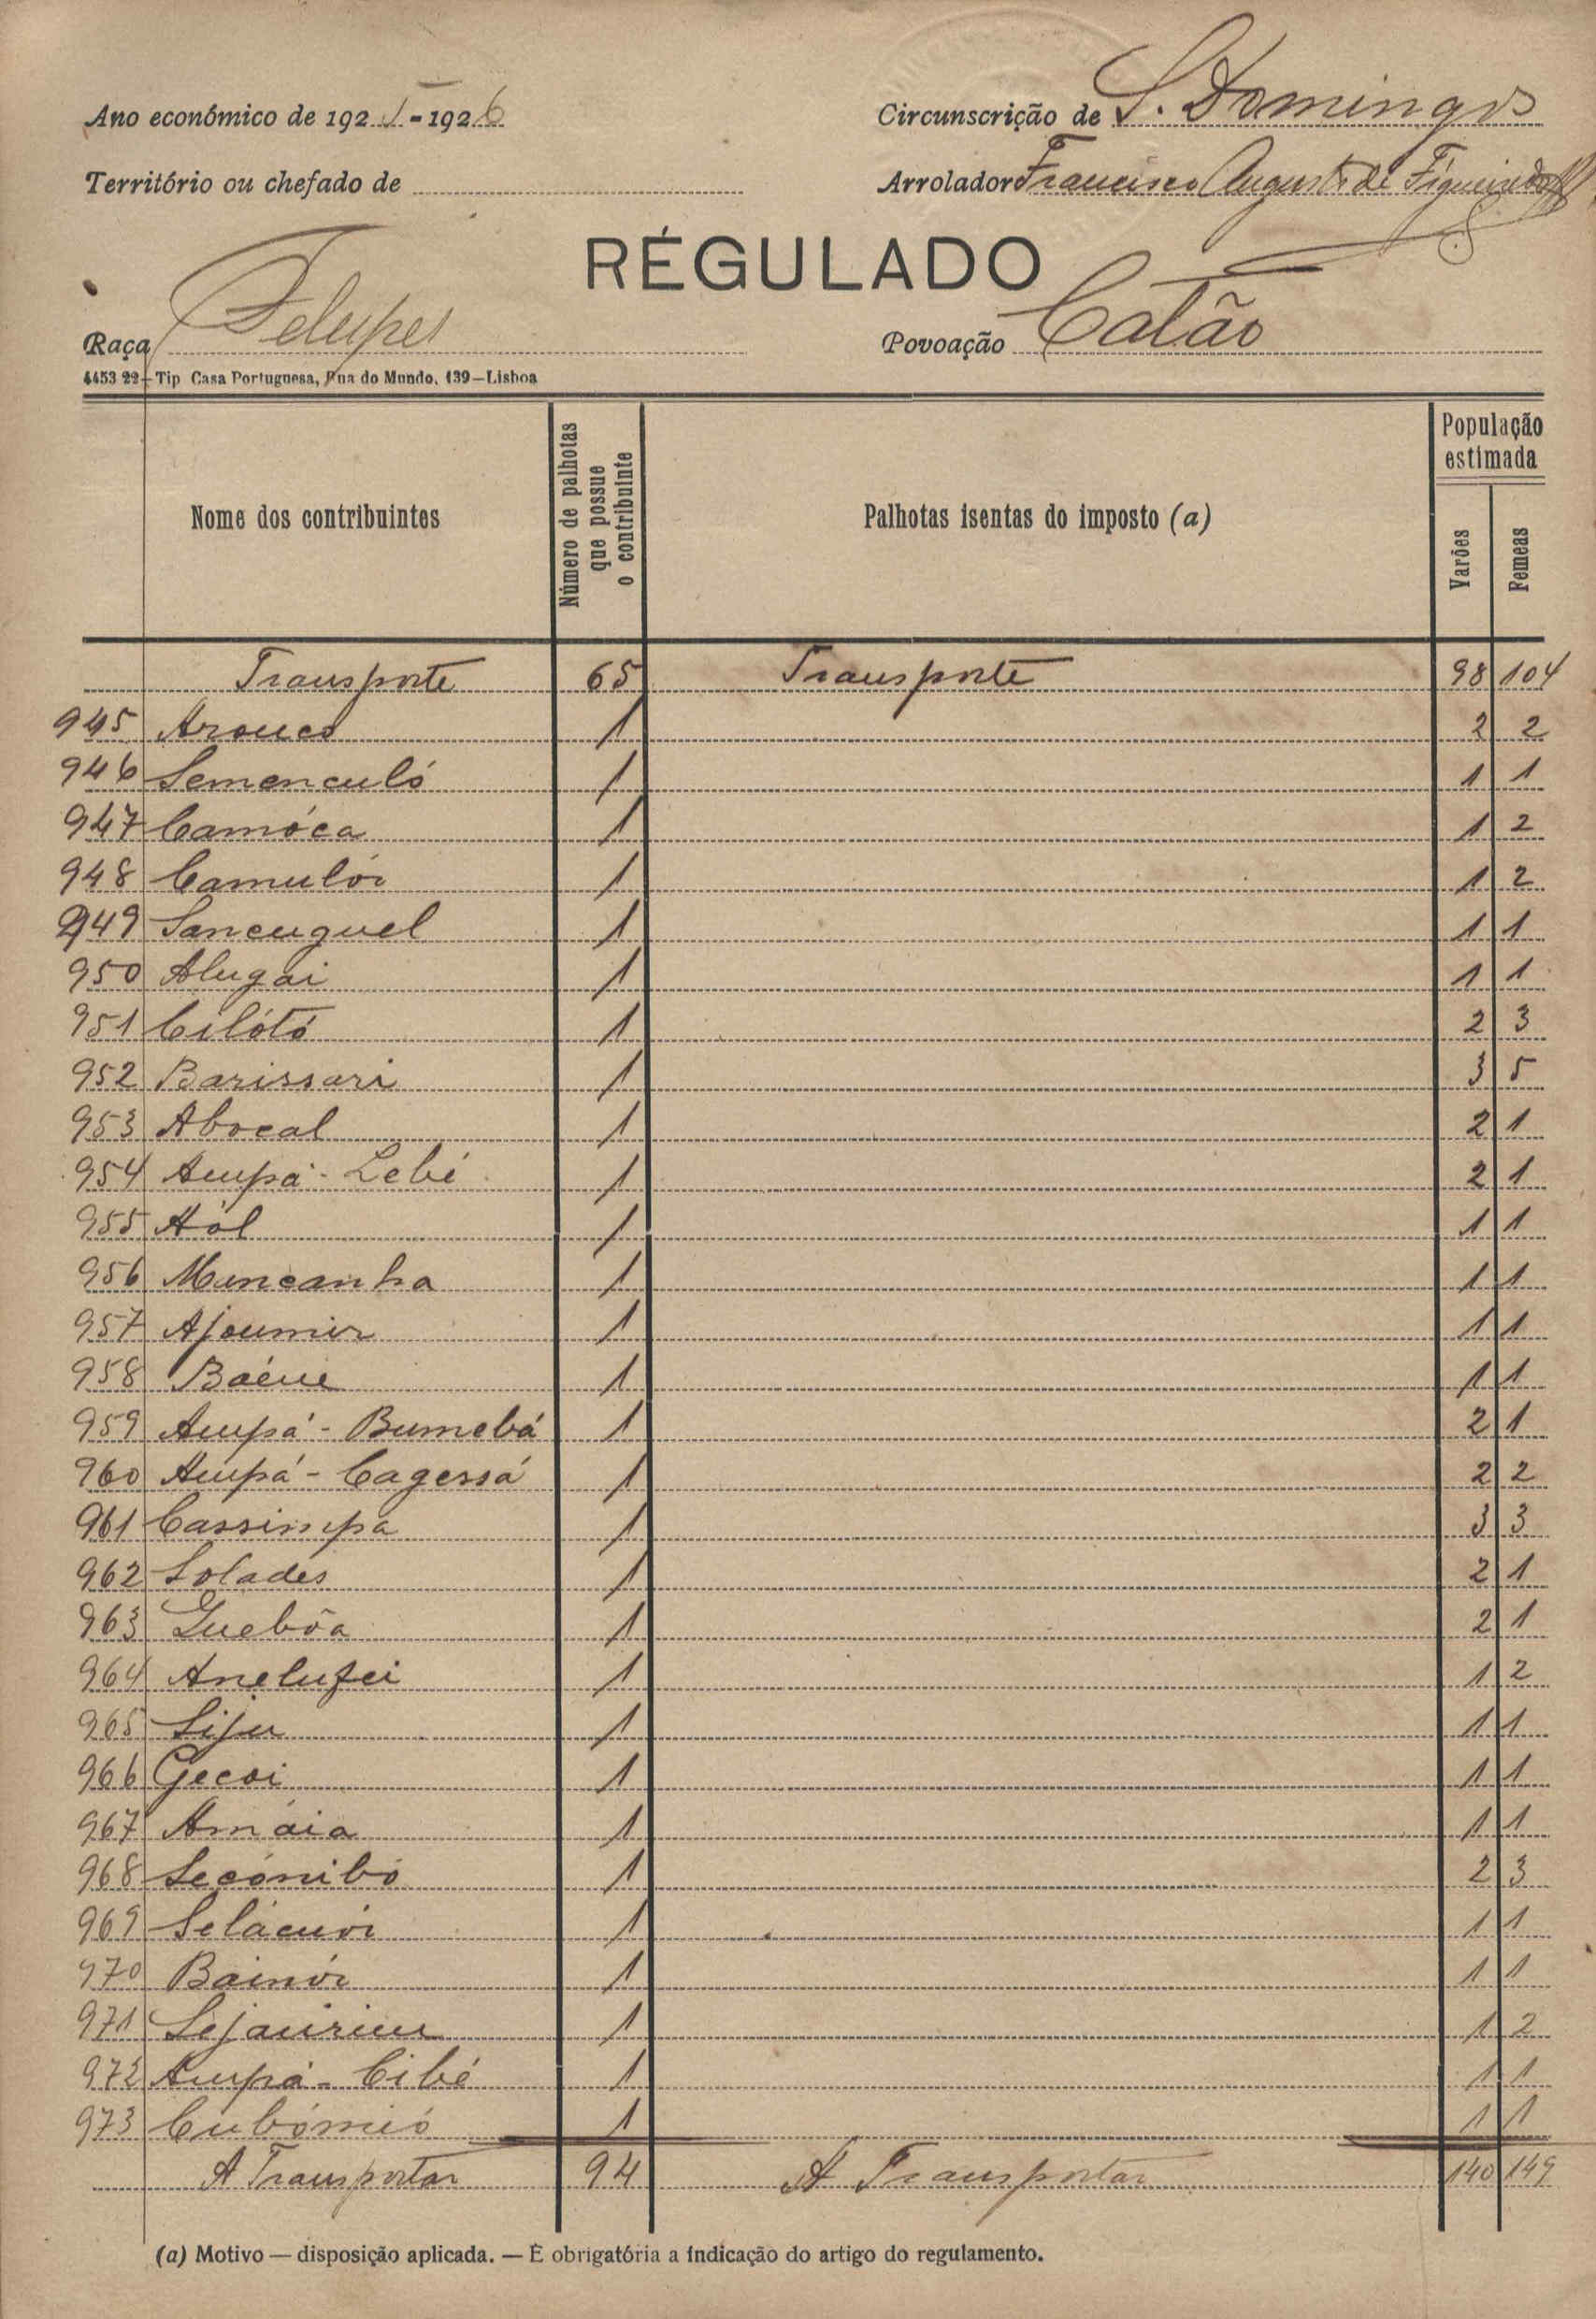 Ano económico de 1925-1926
Circunscrição de S. Domingos
Território ou chefado de
Arrolador Francisco Augusto de Figueiredo
RÉGULADO
Raça Felupes
Povoação Catão
4453 22—Tip Casa Portuguesa, Rua do Mundo, 139—Lisboa
Nome dos contribuintes
Número de palhotas que possue o contribuinte
Palhotas isentas do imposto (a)
População estimada
Varões
Femeas
Transporte 65 Transporte 98 104
945 Arouco 1 2 2
946 Semenculó 1 1 1
947 Camóca 1 1 2
948 Camulór 1 1 2
949 Sancuguel 1 1 1
950 Alugai 1 1 1
951 Cilótó 1 2 3
952 Barissari 1 3 5
953 Abocal 1 2 1
954 Aupá-Lebé 1 2 1
955 Aól 1 1 1
956 Muncanha 1 1 1
957 Ajoumir 1 1 1
958 Baéue 1 1 1
959 Aupá-Bumebá 1 2 1
960 Aupá-Cagessá 1 2 2
961 Cassimpa 1 3 3
962 Solades 1 2 1
963 Guebôa 1 2 1
964 Anelufei 1 1 2
965 Siju 1 1 1
966 Gecoi 1 1 1
967 Amáia 1 1 1
968 Secónibó 1 2 3
969 Selácuói 1 1 1
970 Bainór 1 1 1
971 Sejauriu 1 1 2
972 Aupá-Cibé 1 1 1
973 Cubómió 1 1 1
A Transportar 94 A Transportar 140 149
(a) Motivo — disposição aplicada. — É obrigatória a indicação do artigo do regulamento.